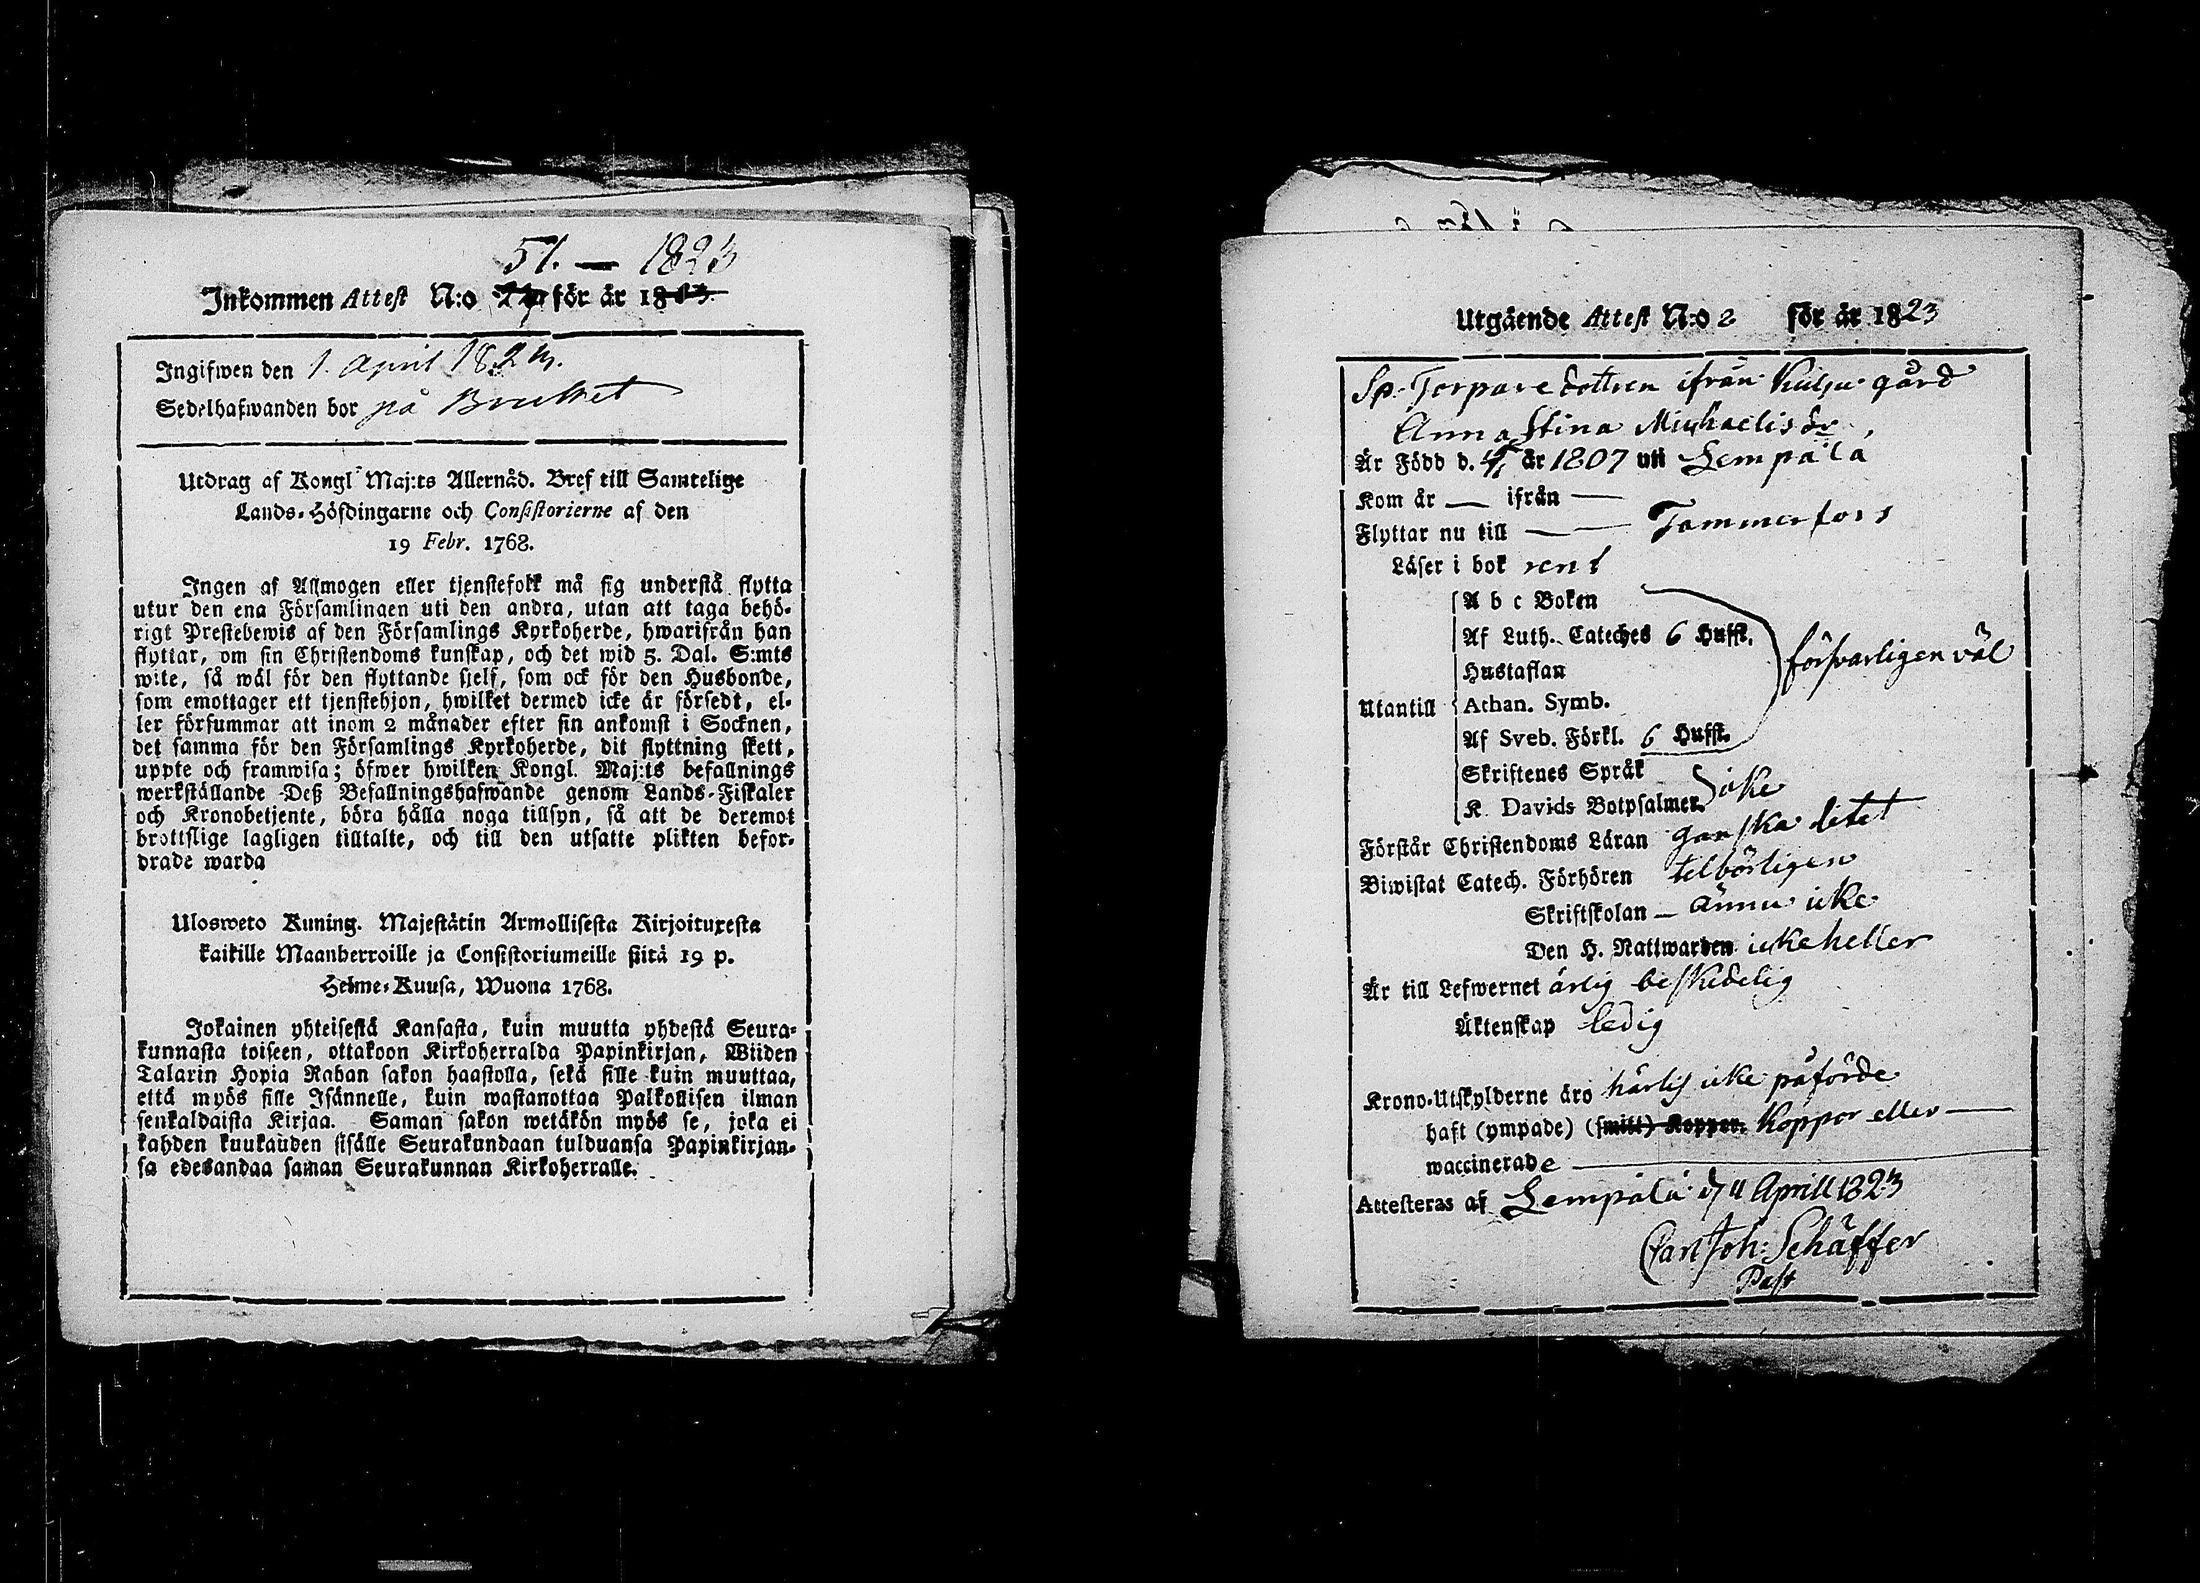 51. — 1823
Inkommen Attest N:o för år 18
Ingifwen den 1. April 1823.
Sedelhafwanden bor på Bruket
Utdrag af Kongl. Maj:ts Allernåd. Bref till Samtelige
Lands-Höfdingarne och Consistorierne af den
19 Febr. 1768.
Ingen af Allmogen eller tjenstefolk må sig understå flytta
utur den ena Församlingen uti den andra, utan att taga behö-
rigt Prestebewis af den Församlings Kyrkoherde, hwarifrån han
flyttar, om sin Christendoms kunskap, och det wid 5. Dal. S:mts
wite, så wäl för den flyttande sjelf, som ock för den Husbonde,
som emottager ett tjenstehjon, hwilket dermed icke är försedt, el-
ler försummar att inom 2 månader efter sin ankomst i Socknen,
det samma för den Församlings Kyrkoherde, dit flyttning skett,
uppte och framwisa; öfwer hwilken Kongl. Maj:ts befallnings
werkställande Deß Befallningshafwande genom Lands-Fiskaler
och Kronobetjente, böra hålla noga tillsyn, så att de deremot
brottslige lagligen tilltalte, och till den utsatte plikten befor-
drade warda
Ulosweto Kuning. Majestätin Armollisesta Kirjoituxesta
kaikille Maanherroille ja Consistoriumeille siitä 19 p.
Helme-Kuusa, Wuona 1768.
Jokainen yhteisestä Kansasta, kuin muutta yhdestä Seura-
kunnasta toiseen, ottakoon Kirkoherralda Papinkirjan, Wiiden
Talarin Hopia Rahan sakon haastolla, sekä sille kuin muuttaa,
että myös sille Isännelle, kuin wastanottaa Palkollisen ilman
senkaldaista Kirjaa. Saman sakon wetäkön myös se, joka ei
kahden kuukauden sisälle Seurakundaan tulduansa Papinkirjan-
sa edesandaa saman Seurakunnan Kirkoherralle.
Utgående Attest N:o 2 för år 1823
Sp. Torpare dottren ifrån Kulju gård
Anna Stina Michaelisdr.
Är Född d. år 1807 uti Lempälä
Kom år — ifrån —
Flyttar nu till — Tammerfors
Läser i bok rent
A b c Boken
Af Luth. Cateches 6 Hufst.
försvarligen väl
Hustaflan
Utantill Athan. Symb.
Af Sveb. Förkl. 6 Hufst.
Skriftenes Språk
icke
K. Davids Botpsalmer.
Förstår Christendoms Läran ganska litet
Biwistat Catech. Förhören tilbörligen
Skriftskolan — ännu icke
Den H. Nattwarden icke heller
Är till Lefwernet ärlig beskedelig
Äktenskap ledig
Krono-Utskylderne äro härtils icke påförde
haft (ympade) (smitt) Koppor. Koppor eller —
waccinerade —
Attesteras af Lempälä d 11 Aprill 1823
Carl Joh: Schäffer
Past